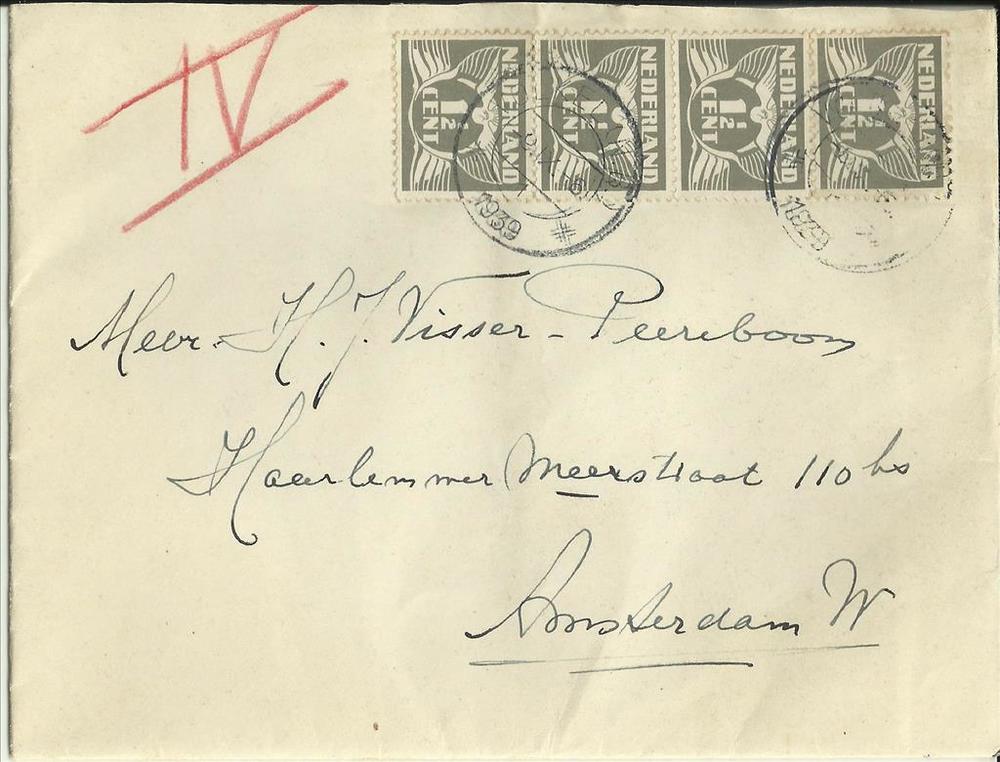 IV
NEDERLAND 1½ CENT NEDERLAND 1½ CENT NEDERLAND 1½ CENT NEDERLAND 1½ CENT
1939 1939
Mevr. H. J. Visser - Peereboom
Haarlemmer Meerstraat 110 hs
Amsterdam W